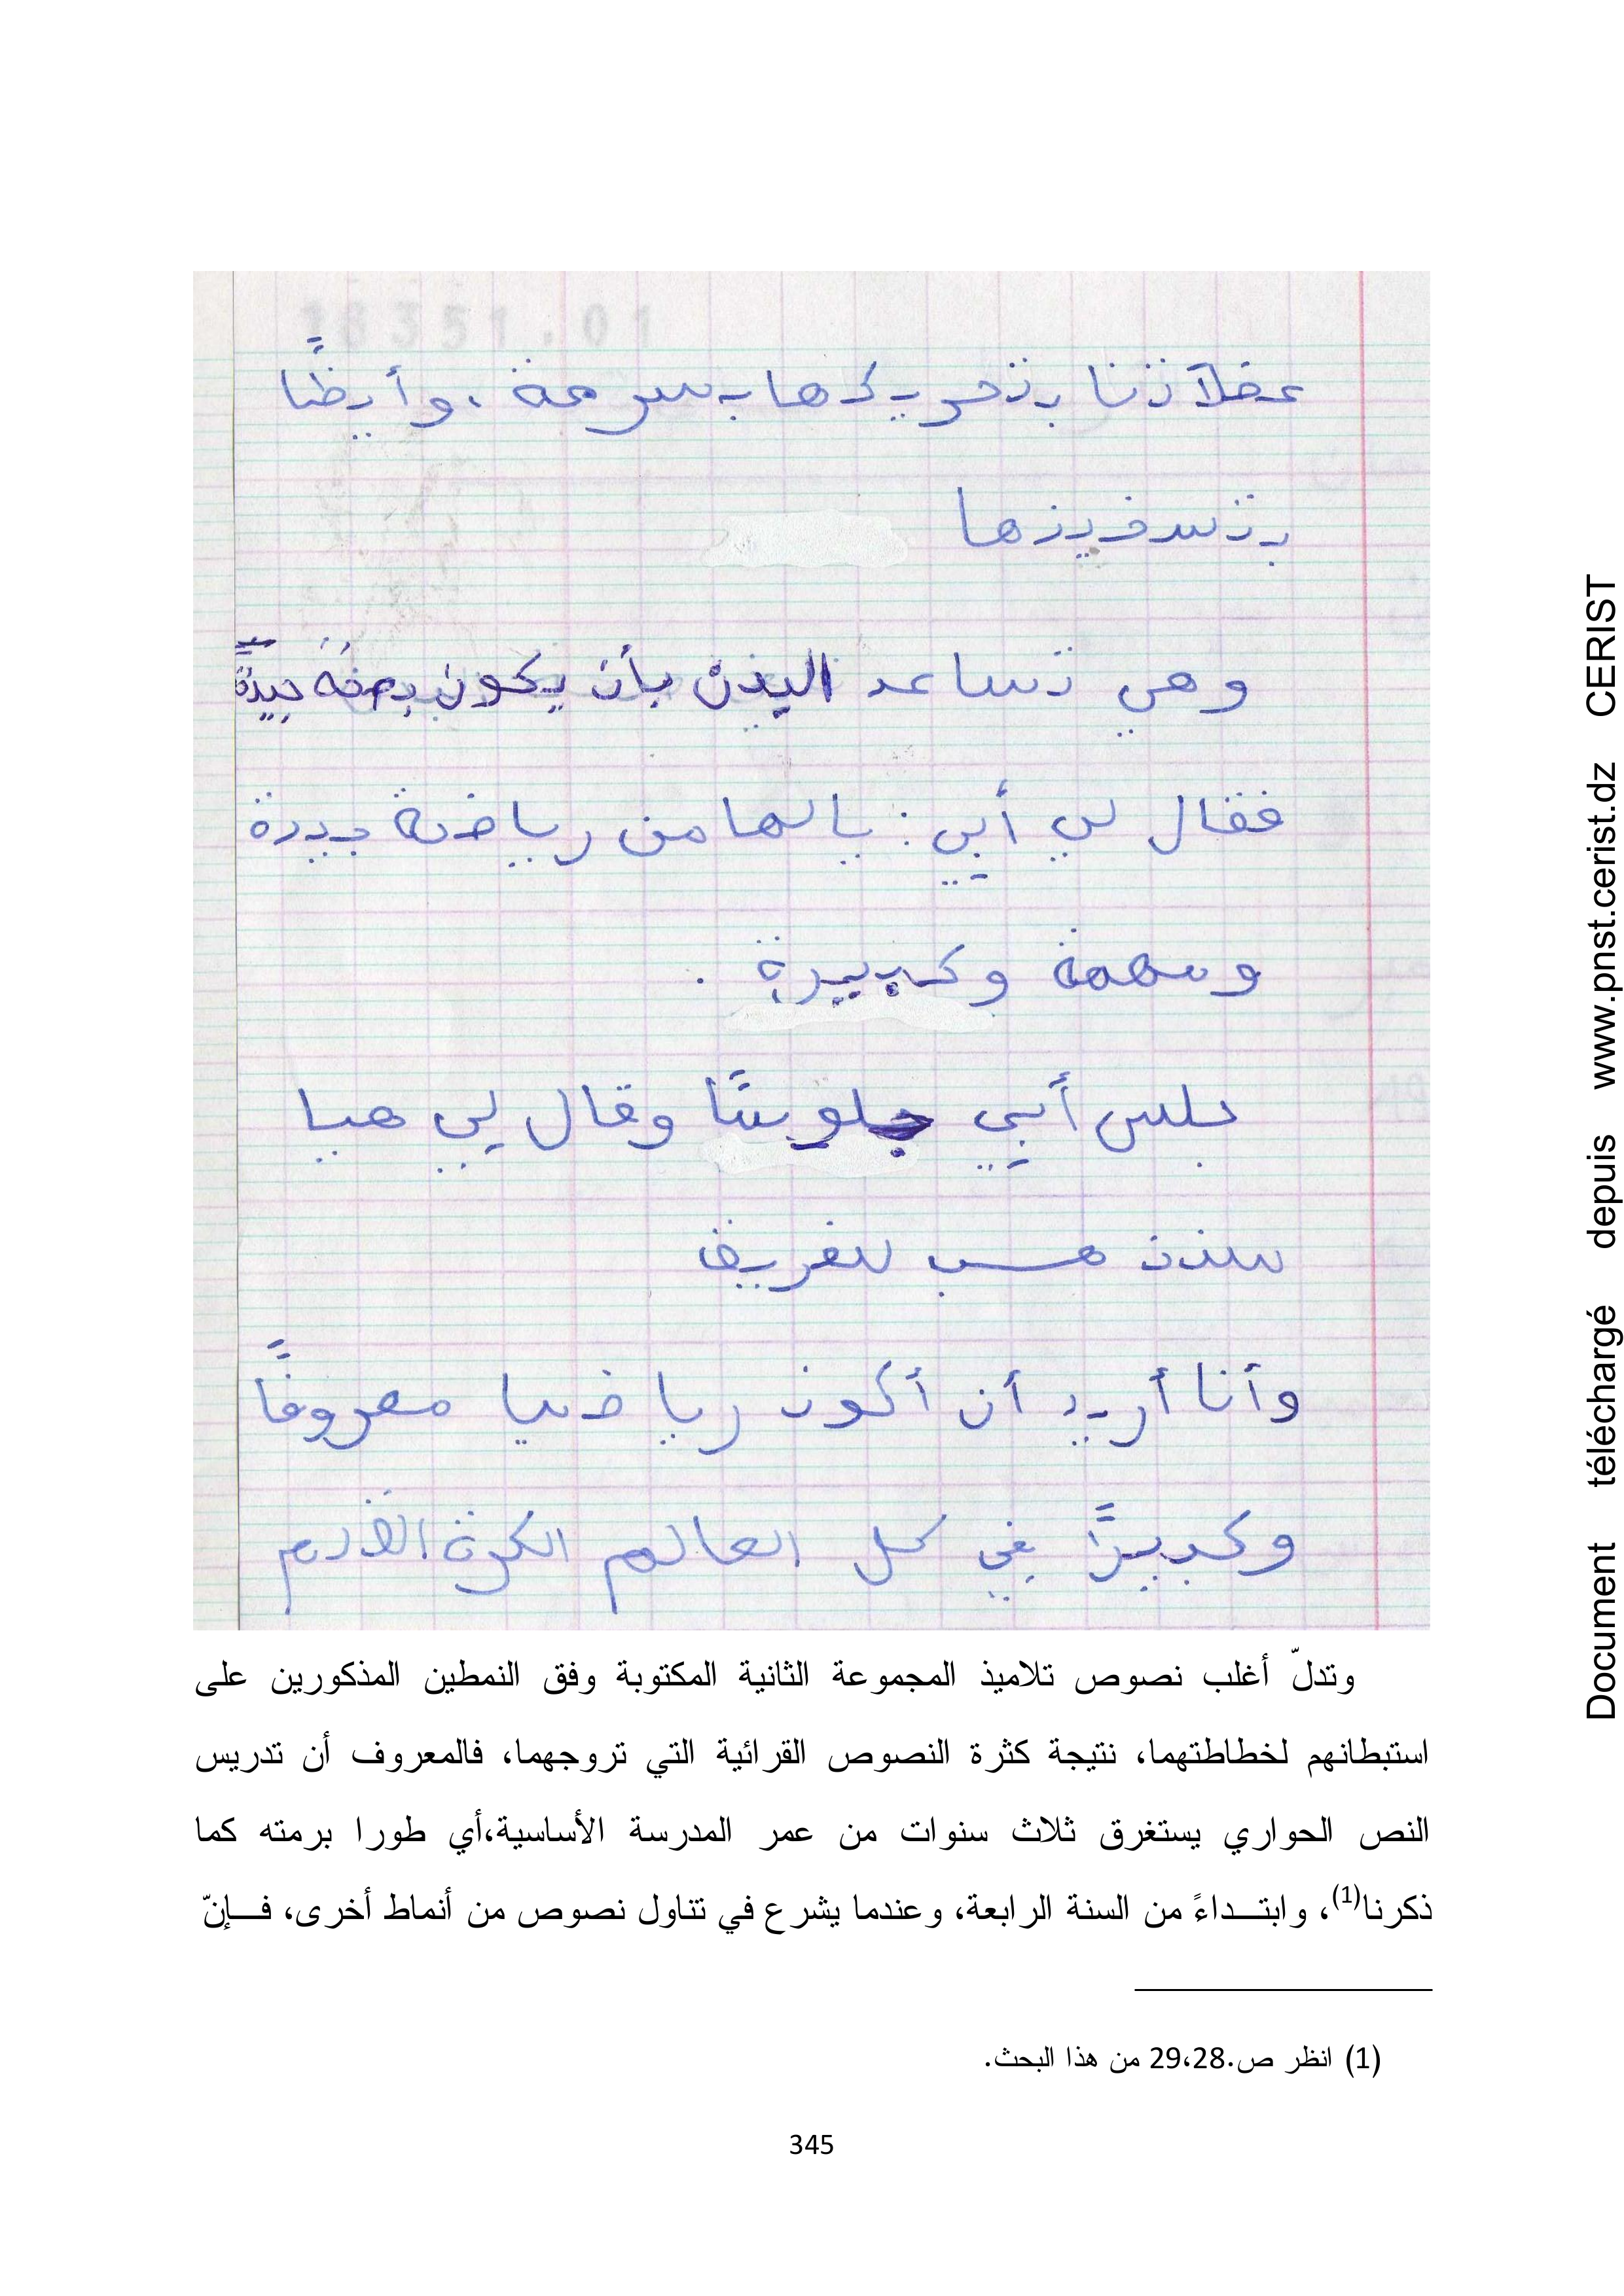 عضلاتنا بتحريكها بسرعة، وأيضًا
بتسخينها
وهي تساعد البدن بأن يكون بصفة جيدةً
فقال لي أبي : يالها من رياضة جيدة
ومهمة وكبيرة .
جلس أبي وقال لي هيا
سنذهب للفريق
وأنا أريد أن أكون رياضيا معروفًا
وكبيرًا في كل العالم الكرة القدم
وتدلّ أغلب نصوص تلاميذ المجموعة الثانية المكتوبة وفق النمطين المذكورين على
استبطانهم لخطاطتهما، نتيجة كثرة النصوص القرائية التي تروجهما، فالمعروف أن تدريس
النص الحواري يستغرق ثلاث سنوات من عمر المدرسة الأساسية،أي طورا برمته كما
ذكرنا(1)، وابتـــداءً من السنة الرابعة، وعندما يشرع في تناول نصوص من أنماط أخرى، فـــإنّ
(1) انظر ص.28،29 من هذا البحث.
345
Document téléchargé depuis www.pnst.cerist.dz CERIST